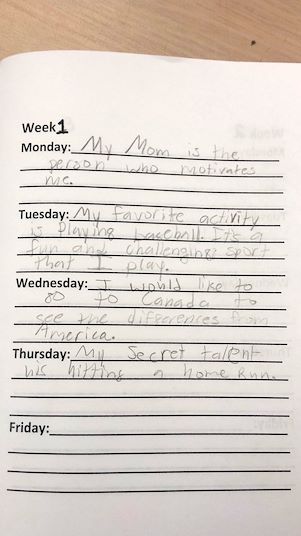 Week 1
Monday: My Mom is the
person who motivates
me.
Tuesday: My favorite activity
is playing baceball. It's a
fun and challenging sport
that I play.
Wednesday: I would like to
go to Canada to
see the differences from
America.
Thursday: My Secret talent
his hitting a home Run.
Friday: